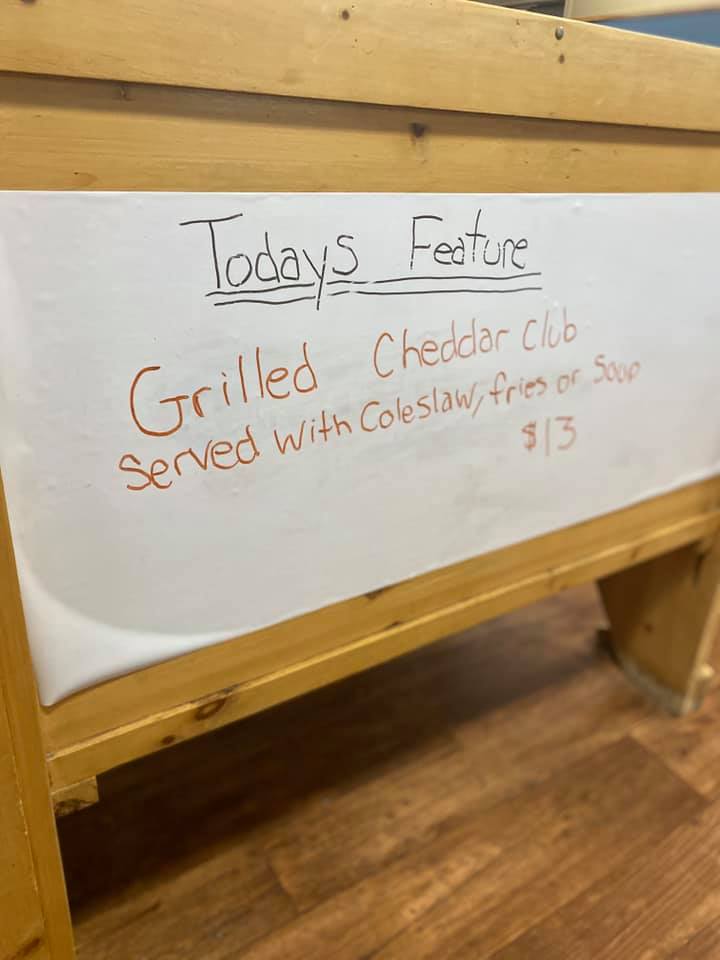 Todays Feature
Grilled Cheddar Club
Served With Coleslaw, fries or Soup
$13